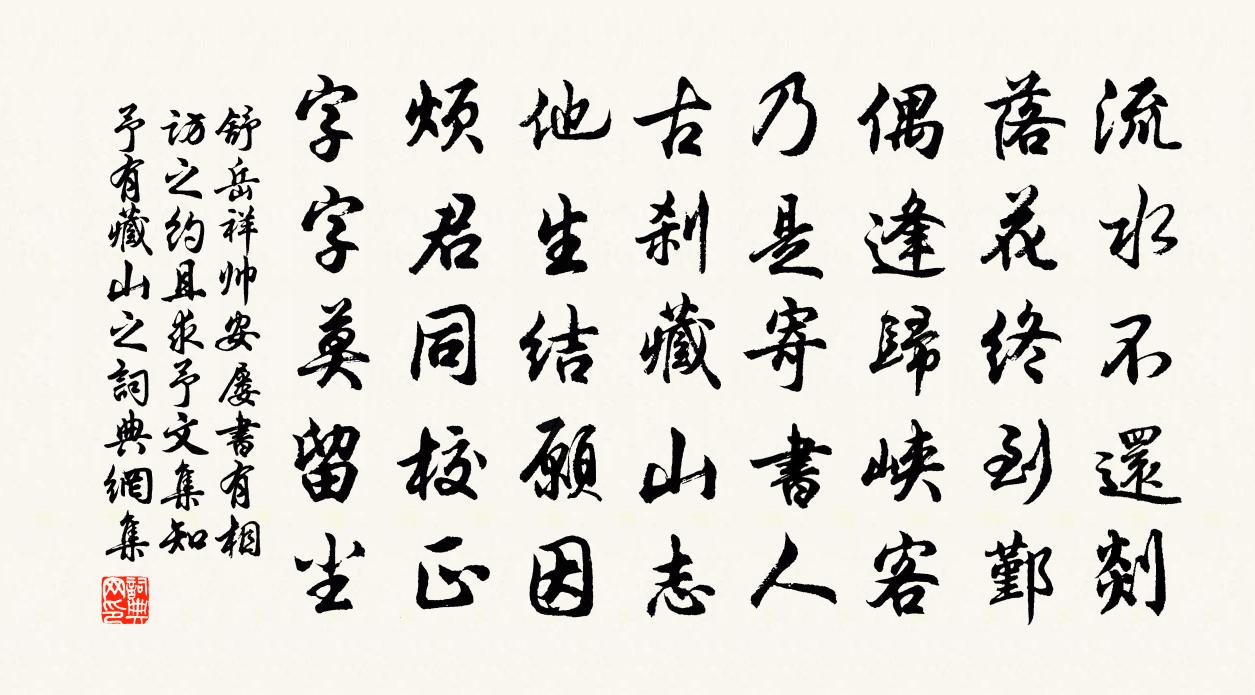 流水不還剡
落花終到鄞
偶逢歸峽客
乃是寄書人
古刹藏山志
他生结願因
煩君同校正
字字莫留尘
舒岳祥帅安屡書有相
访之约且求予文集知
予有藏山之詞典網集
詞典网印